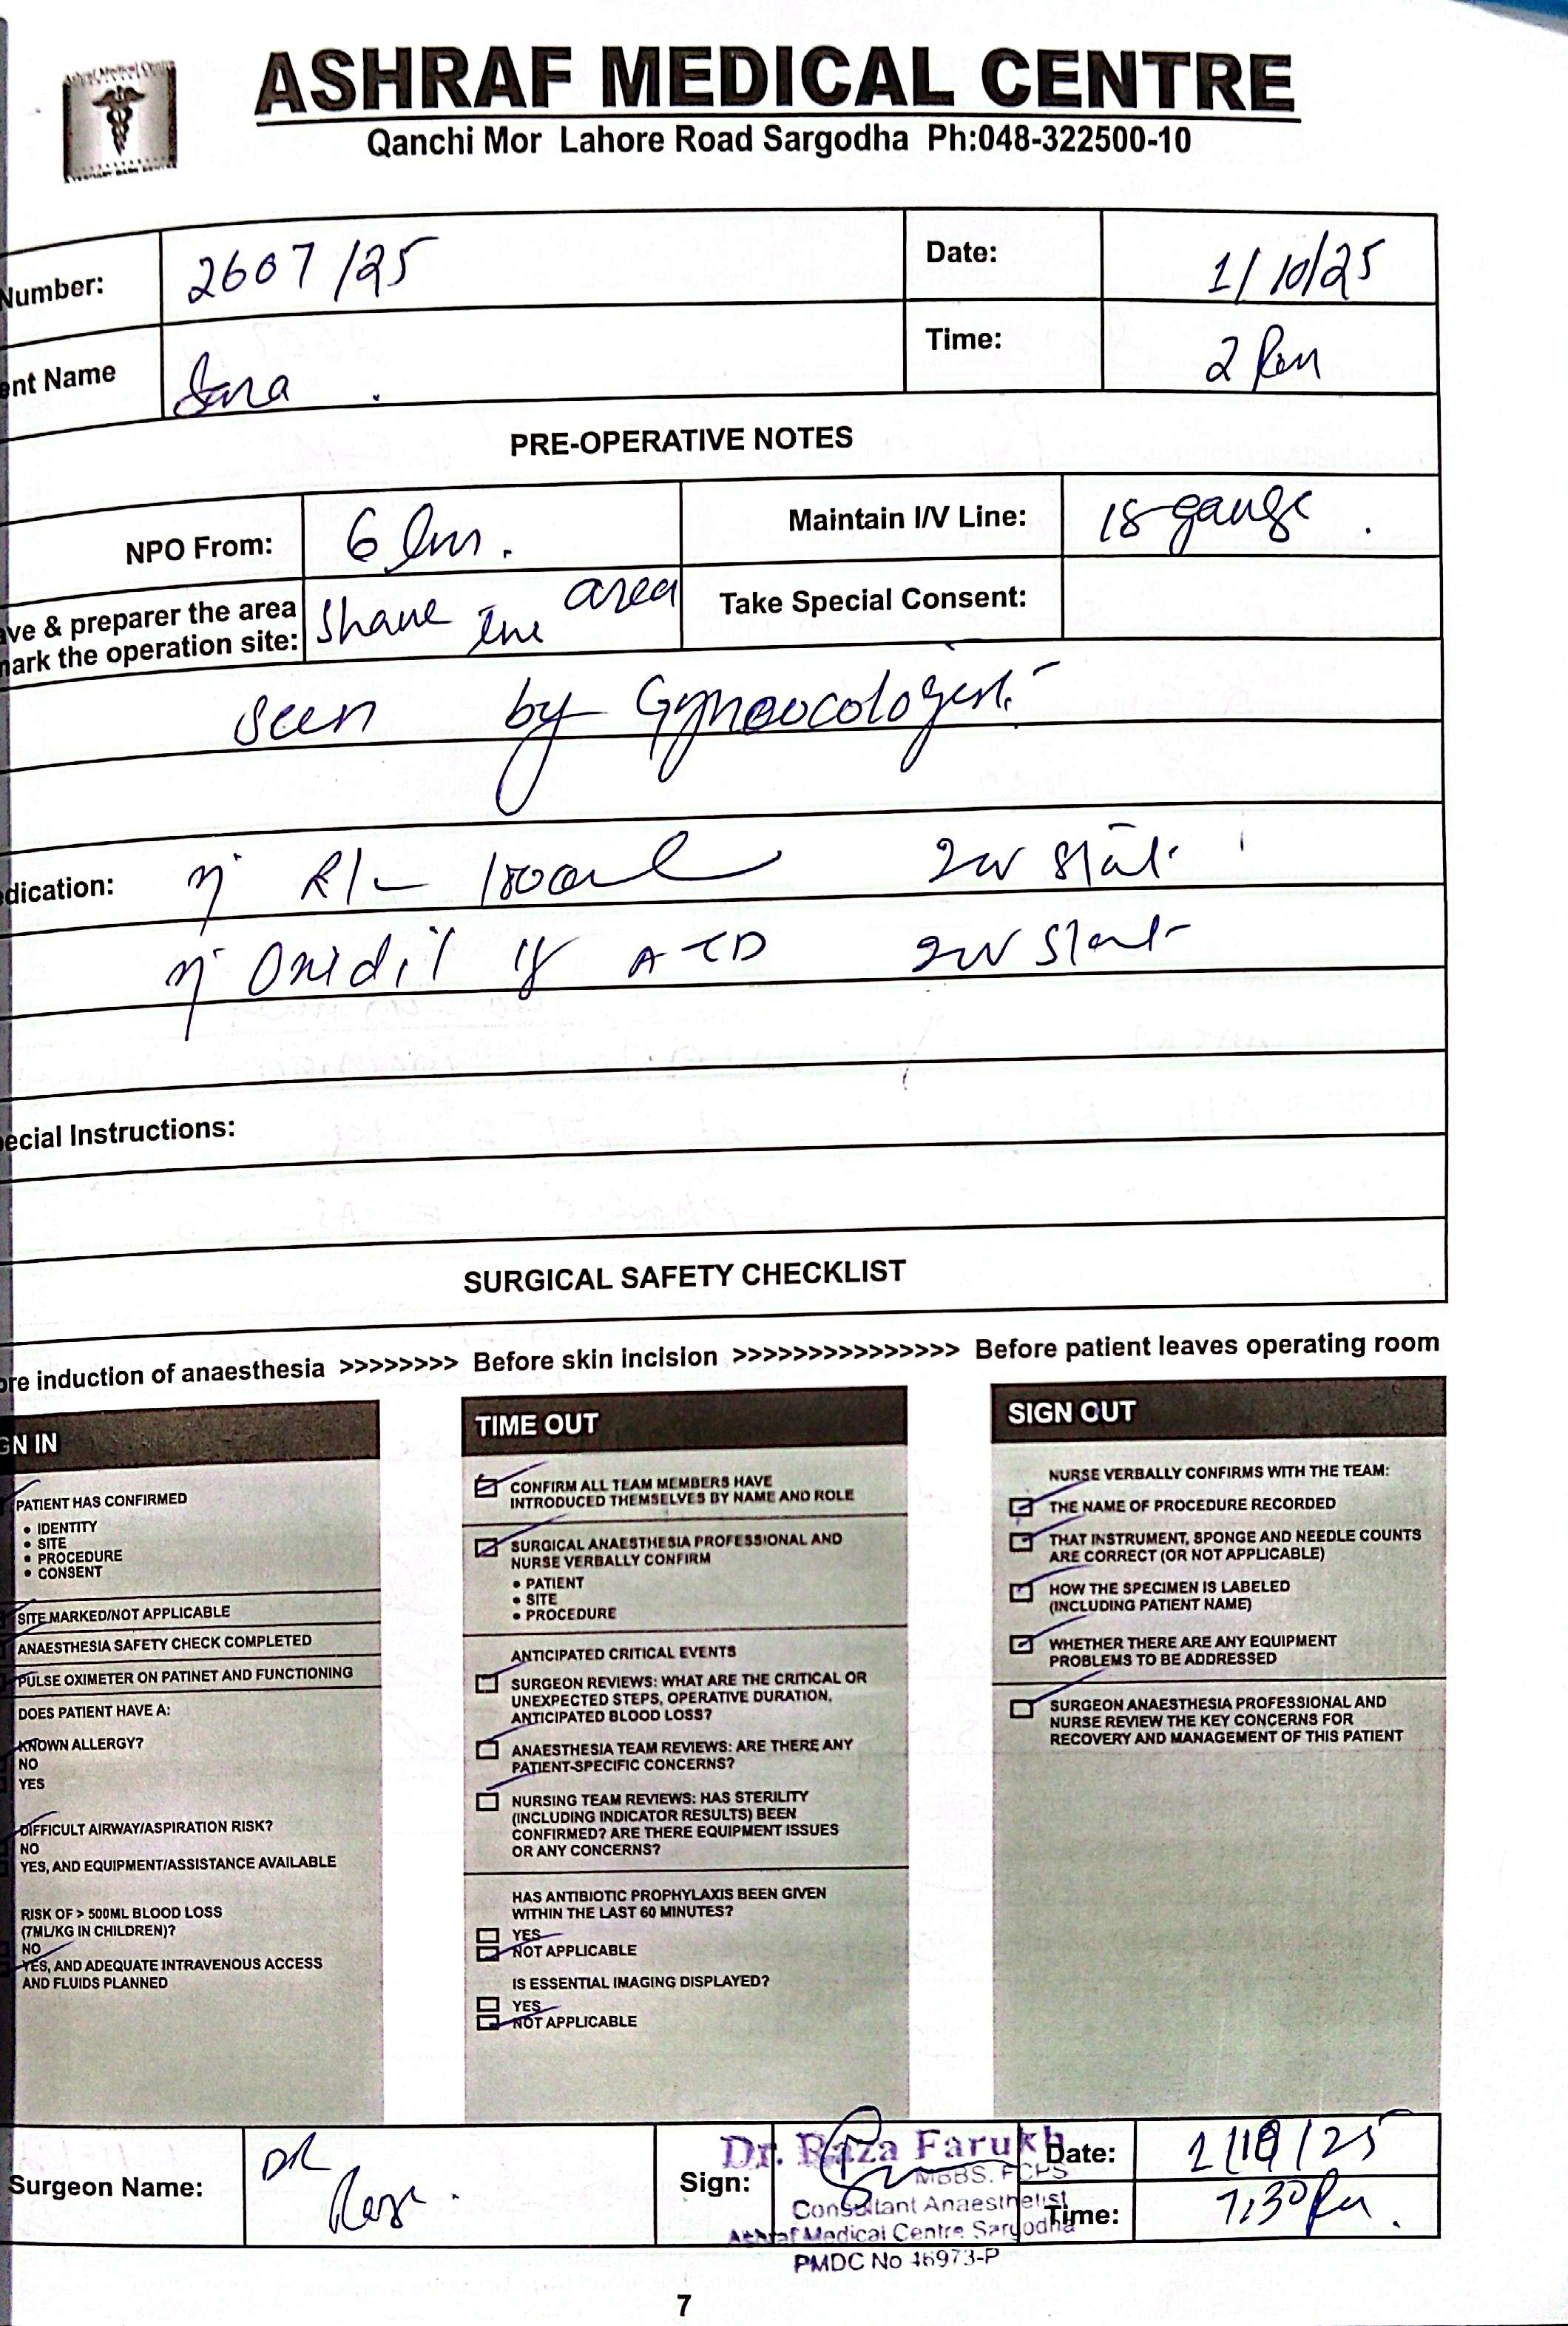 ASHRAF MEDICAL CENTRE
Qanchi Mor Lahore Road Sargodha Ph:048-322500-10
Number: 2607/25 Date: 1/10/25
ent Name Sara . Time: 2
PRE-OPERATIVE NOTES
NPO From: 6 Maintain I/V Line: 18 gauge .
ve & preparer the area
mark the operation site: Shave the area Take Special Consent:
seen by Gynaocologist
dication: R/L 1000ml stat
1g ATD stat
ecial Instructions:
SURGICAL SAFETY CHECKLIST
ore induction of anaesthesia >>>>>>>> Before skin incision >>>>>>>>>>>>>>> Before patient leaves operating room
GN IN
PATIENT HAS CONFIRMED
• IDENTITY
• SITE
• PROCEDURE
• CONSENT
SITE MARKED/NOT APPLICABLE
ANAESTHESIA SAFETY CHECK COMPLETED
PULSE OXIMETER ON PATINET AND FUNCTIONING
DOES PATIENT HAVE A:
KNOWN ALLERGY?
NO
YES
DIFFICULT AIRWAY/ASPIRATION RISK?
NO
YES, AND EQUIPMENT/ASSISTANCE AVAILABLE
RISK OF > 500ML BLOOD LOSS
(7ML/KG IN CHILDREN)?
NO
YES, AND ADEQUATE INTRAVENOUS ACCESS
AND FLUIDS PLANNED
TIME OUT
CONFIRM ALL TEAM MEMBERS HAVE
INTRODUCED THEMSELVES BY NAME AND ROLE
SURGICAL ANAESTHESIA PROFESSIONAL AND
NURSE VERBALLY CONFIRM
• PATIENT
• SITE
• PROCEDURE
ANTICIPATED CRITICAL EVENTS
SURGEON REVIEWS: WHAT ARE THE CRITICAL OR
UNEXPECTED STEPS, OPERATIVE DURATION,
ANTICIPATED BLOOD LOSS?
ANAESTHESIA TEAM REVIEWS: ARE THERE ANY
PATIENT-SPECIFIC CONCERNS?
NURSING TEAM REVIEWS: HAS STERILITY
(INCLUDING INDICATOR RESULTS) BEEN
CONFIRMED? ARE THERE EQUIPMENT ISSUES
OR ANY CONCERNS?
HAS ANTIBIOTIC PROPHYLAXIS BEEN GIVEN
WITHIN THE LAST 60 MINUTES?
YES
NOT APPLICABLE
IS ESSENTIAL IMAGING DISPLAYED?
YES
NOT APPLICABLE
SIGN OUT
NURSE VERBALLY CONFIRMS WITH THE TEAM:
THE NAME OF PROCEDURE RECORDED
THAT INSTRUMENT, SPONGE AND NEEDLE COUNTS
ARE CORRECT (OR NOT APPLICABLE)
HOW THE SPECIMEN IS LABELED
(INCLUDING PATIENT NAME)
WHETHER THERE ARE ANY EQUIPMENT
PROBLEMS TO BE ADDRESSED
SURGEON ANAESTHESIA PROFESSIONAL AND
NURSE REVIEW THE KEY CONCERNS FOR
RECOVERY AND MANAGEMENT OF THIS PATIENT
Surgeon Name: DR Raza . Sign: Date: 1/10/25
Time: 7:30
Dr. Raza Farukh
MBBS. FCPS
Consultant Anaesthetist
Ashraf Medical Centre Sargodha
PMDC No 46973-P
7